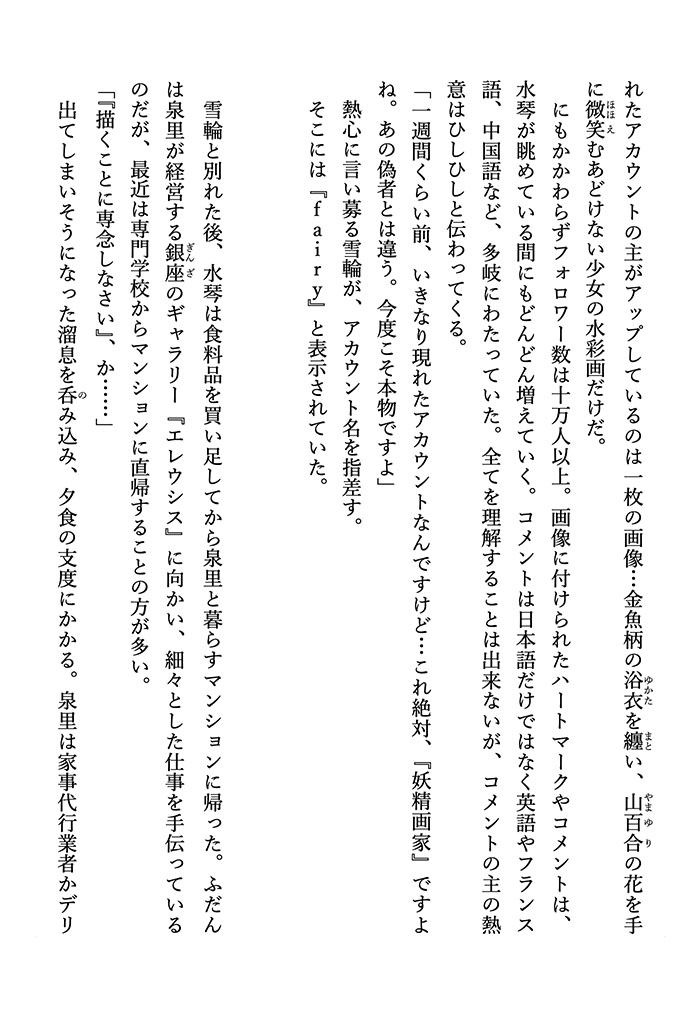 れたアカウントの主がアップしているのは一枚の画像…金魚柄の浴衣を纏い、山百合の花を手
に微笑むあどけない少女の水彩画だけだ。
にもかかわらずフォロワー数は十万人以上。画像に付けられたハートマークやコメントは、
水琴が眺めている間にもどんどん増えていく。コメントは日本語だけではなく英語やフランス
語、中国語など、多岐にわたっていた。全てを理解することは出来ないが、コメントの主の熱
意はひしひしと伝わってくる。
「一週間くらい前、いきなり現れたアカウントなんですけど…これ絶対、『妖精画家』ですよ
ね。あの偽者とは違う。今度こそ本物ですよ」
熱心に言い募る雪輪が、アカウント名を指差す。
そこには『ｆａｉｒｙ』と表示されていた。
雪輪と別れた後、水琴は食料品を買い足してから泉里と暮らすマンションに帰った。ふだん
は泉里が経営する銀座のギャラリー『エレウシス』に向かい、細々とした仕事を手伝っている
のだが、最近は専門学校からマンションに直帰することの方が多い。
「『描くことに専念しなさい』、か……」
出てしまいそうになった溜息を呑み込み、夕食の支度にかかる。泉里は家事代行業者かデリ